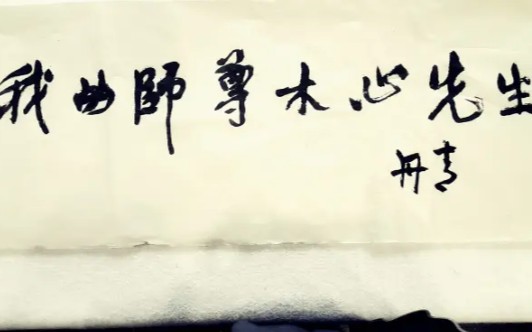 我的師尊木心先生
丹青